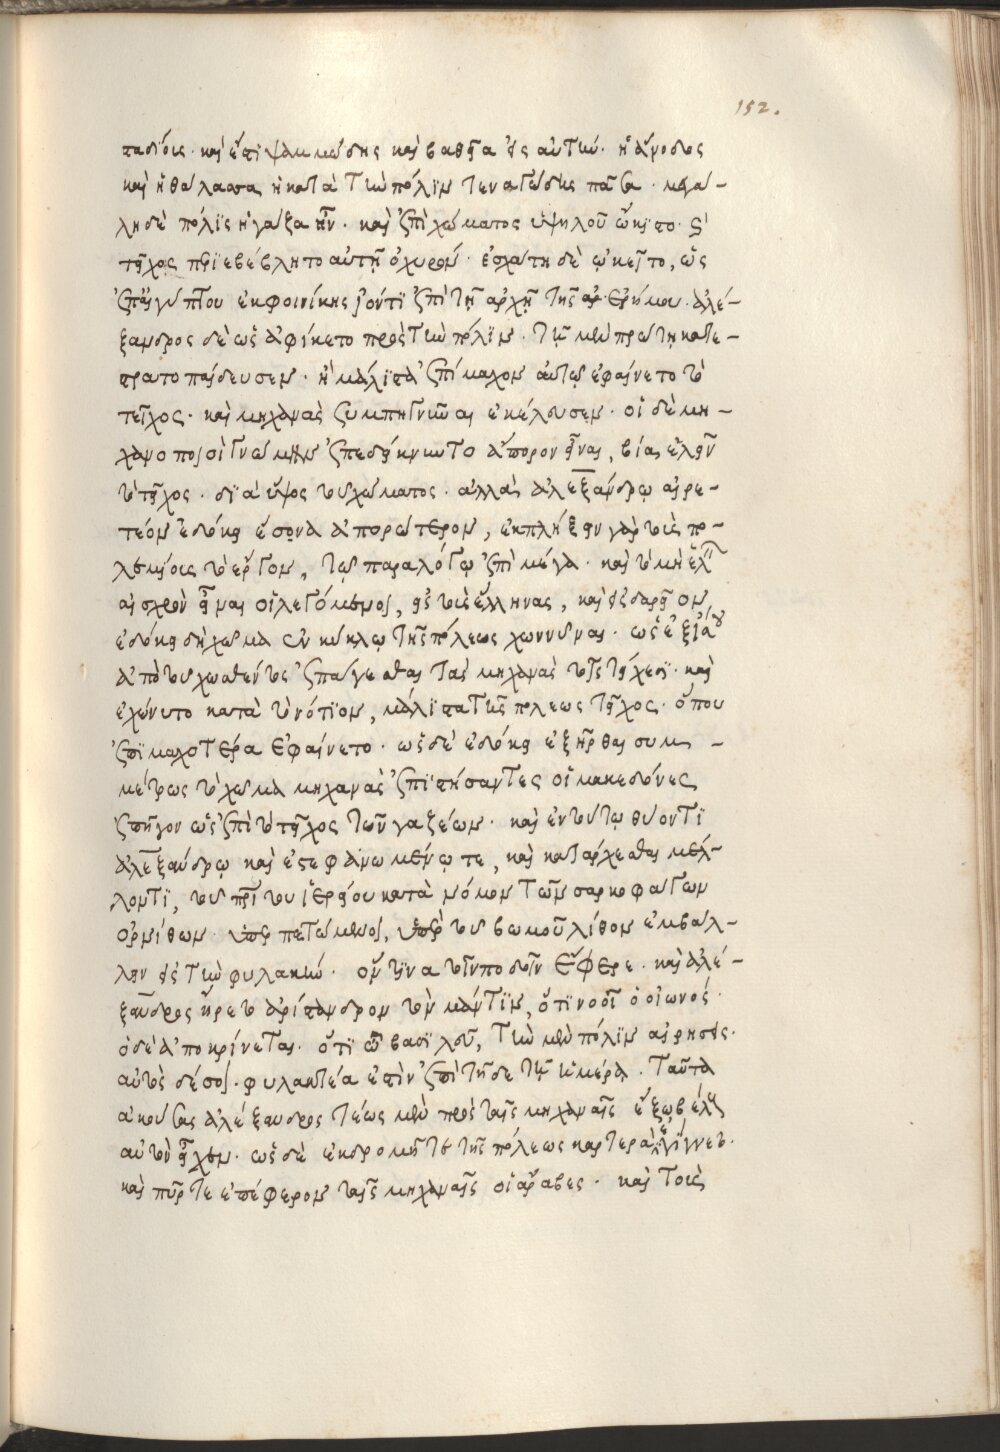 152.
σταδίοις· καὶ ἔστι ψαμμώδης καὶ βαθεῖα ἐς αὐτὴν· ἡ ἄνοδος
καὶ ἡ θάλασσα ἡ κατὰ τὴν πόλιν τεναγώδης πᾶσα· μεγά-
λη δὲ πόλις ἡ γάζα ἦν· καὶ ἐπὶ χώματος ὑψηλοῦ ᾤκιστο· καὶ
τεῖχος περιεβέβλητο αὐτῇ ὀχυρόν· ἐσχάτη δὲ ᾠκεῖτο, ὡς
ἐπ' αἰγύπτου ἐκ φοινίκης ἰόντι ἐπὶ τῇ ἀρχῇ τῆς ἐρήμου· ἀλέ-
ξανδρος δὲ ὡς ἀφίκετο πρὸς τὴν πόλιν· τῇ μὲν πρώτῃ κατε-
στρατοπαίδευσεν· ᾗ μάλιστα ἐπίμαχον αὐτῷ ἐφαίνετο τὸ
τεῖχος· καὶ μηχανὰς ξυμπηγνῦναι ἐκέλευσεν· οἱ δὲ μη-
χανοποιοὶ γνώμην ἐπεδείκνυντο ἄπορον εἶναι, βίᾳ ἑλεῖν
τὸ τεῖχος· διὰ ὕψος τοῦ χώματος· ἀλλὰ ἀλεξάνδρῳ αἱρε-
τέον ἐδόκει ἐσονα ἀπορώτερον, ἐκπλήξειν γὰρ τοὺς πο-
λεμίους τὸ ἔργον, τῷ παραλόγῳ ἐπὶ μέγα· καὶ τὸ μὴ ἑλεῖν
αἰσχρὸν εἶναι οἱ λεγόμενον, εἰς τοὺς ἕλληνας, καὶ ἐς δαρεῖον,
ἐδόκει δὴ χῶμα ἐν κύκλῳ τῆς πόλεως χωννύναι· ὡς ἐξ ἴσου
ἀπὸ τοῦ χωσθέντος ἐπάγεσθαι τὰς μηχανὰς τοῖς τείχεσι· καὶ
ἐχώννυτο κατὰ τὸ νότιον, μάλιστα τῆς πόλεως τεῖχος· ὅπου
ἐπιμαχώτερα ἐφαίνετο· ὡς δὲ ἐδόκει ἐξῆρθαι συμ-
μέτρως τὸ χῶμα μηχανὰς ἐπιστήσαντες οἱ μακεδόνες
ἐπῆγον ὡς ἐπὶ τὸ τεῖχος τῶν γαζέων· καὶ ἐν τούτῳ θύοντι
ἀλεξάνδρῳ καὶ ἐστεφανωμένῳ τε, καὶ κατάρχεσθαι μέλ-
λοντι, τοῦ πρώτου ἱερείου κατὰ νόμον τῶν σαρκοφάγων
ὀρνίθων ὑπερπετόμενος, ὑπὲρ τοῦ βωμοῦ λίθον ἐμβάλ-
λει ἐς τὴν φυλακήν· ὅν τινα τοῖν ποδοῖν ἔφερε· καὶ ἀλέ-
ξανδρος ἤρετο ἀρίστανδρον τὸν μάντιν, ὅτι νοοῖ ὁ οἰωνός·
ὁ δὲ ἀποκρίνεται· ὅτι ὦ βασιλεῦ, τὴν μὲν πόλιν αἱρήσεις·
αὐτὸς δέ σοι· φυλακτέα ἐστὶν ἐπὶ τῇδε τῇ ἡμέρᾳ· ταῦτα
ἀκούσας ἀλέξανδρος τέως μὲν πρὸς ταῖς μηχαναῖς ἔξω βέλους
αὐτὸν εἶχεν· ὡς δὲ ἐκδρομή τε τῆς πόλεως καρτερὰ ἐγίγνετο·
καὶ πῦρ τε ἐπέφερον ταῖς μηχαναῖς οἱ ἄραβες· καὶ τοὺς